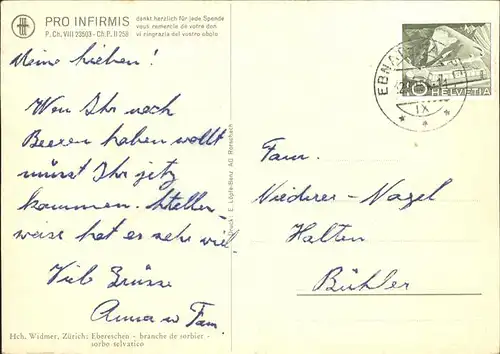 PRO INFIRMIS
P. Ch. VIII 23503 - Ch. P. II 258
dankt herzlich für jede Spende
vous remercie de votre don
vi ringrazia del vostro obolo
Meine Lieben!
Wen Ihr noch
Beeren haben wollt
müsst Ihr jetz
kommen. Stellen-
weise hat es sehr viel
Viel Grüsse
Anna u Fam.
Hch. Widmer, Zürich: Ebereschen - branche de sorbier -
sorbo selvatico
Druck: E. Löpfe-Benz AG Rorschach
HELVETIA
EBNA
IX
Fam.
Niederer-Nagel
Halten
Bühler